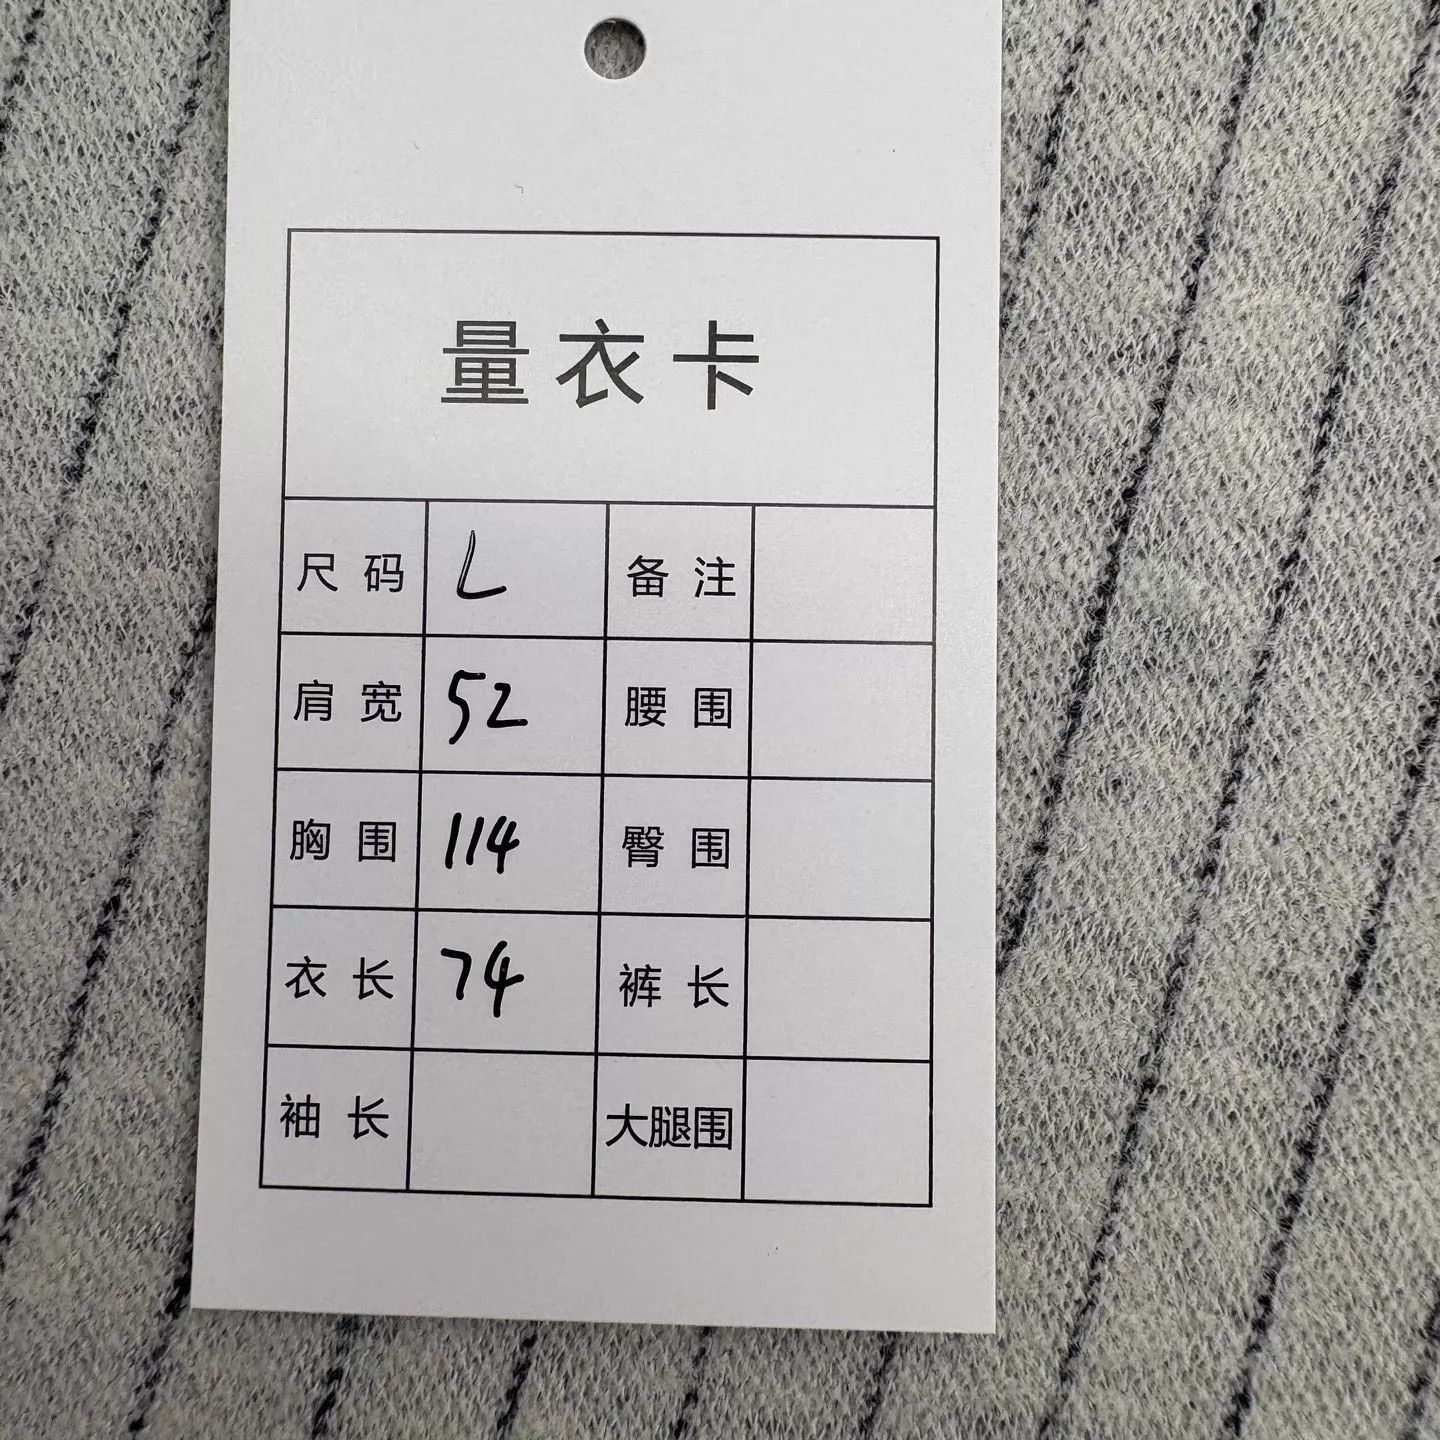 量衣卡
尺码 L 备注
肩宽 52 腰围
胸围 114 臀围
衣长 74 裤长
袖长 大腿围